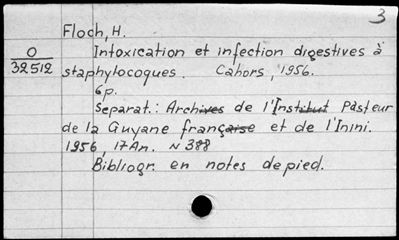 3
Floch, H.
0
32512
Intoxication et infection digestives à
staphylocoques. Cahors, 1956.
6p.
Separat.: Archives de l'Institut Pasteur
de la Guyane française et de l'Inini.
1956, 17An. N 388
Bibliogr. en notes de pied.